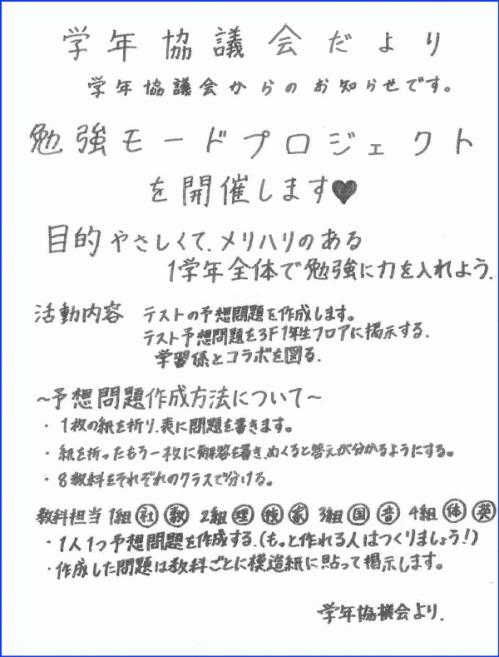 学年協議会だより
学年協議会からのお知らせです。
勉強モードプロジェクト
を開催します♥
目的 やさしくて、メリハリのある
1学年全体で勉強に力を入れよう。
活動内容 テストの予想問題を作成します。
テスト予想問題を3F1年生フロアに掲示する。
学習係とコラボを図る。
~予想問題作成方法について~
・1枚の紙を折り、表に問題を書きます。
・紙を折ったもう一枚に解答を書き、めくると答えが分かるようにする。
・8教科をそれぞれのクラスで分ける。
教科担当 1組 社 数 2組 理 技 家 3組 国 音 4組 体 英
・1人1つ予想問題を作成する。(もっと作れる人はつくりましょう!)
・作成した問題は教科ごとに模造紙に貼って掲示します。
学年協議会より。